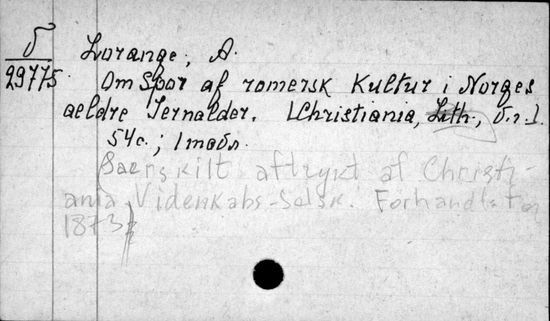 б
29775
Lorange, A.
Om Spor af romersk Kultur i Norges
aeldre Jernalder. [Christiania, Lith., б.г.].
54с.; 1 табл.
Saerskilt aftrykt af Christi-
ania Videnkabs-Selsk. Forhandl.
1873